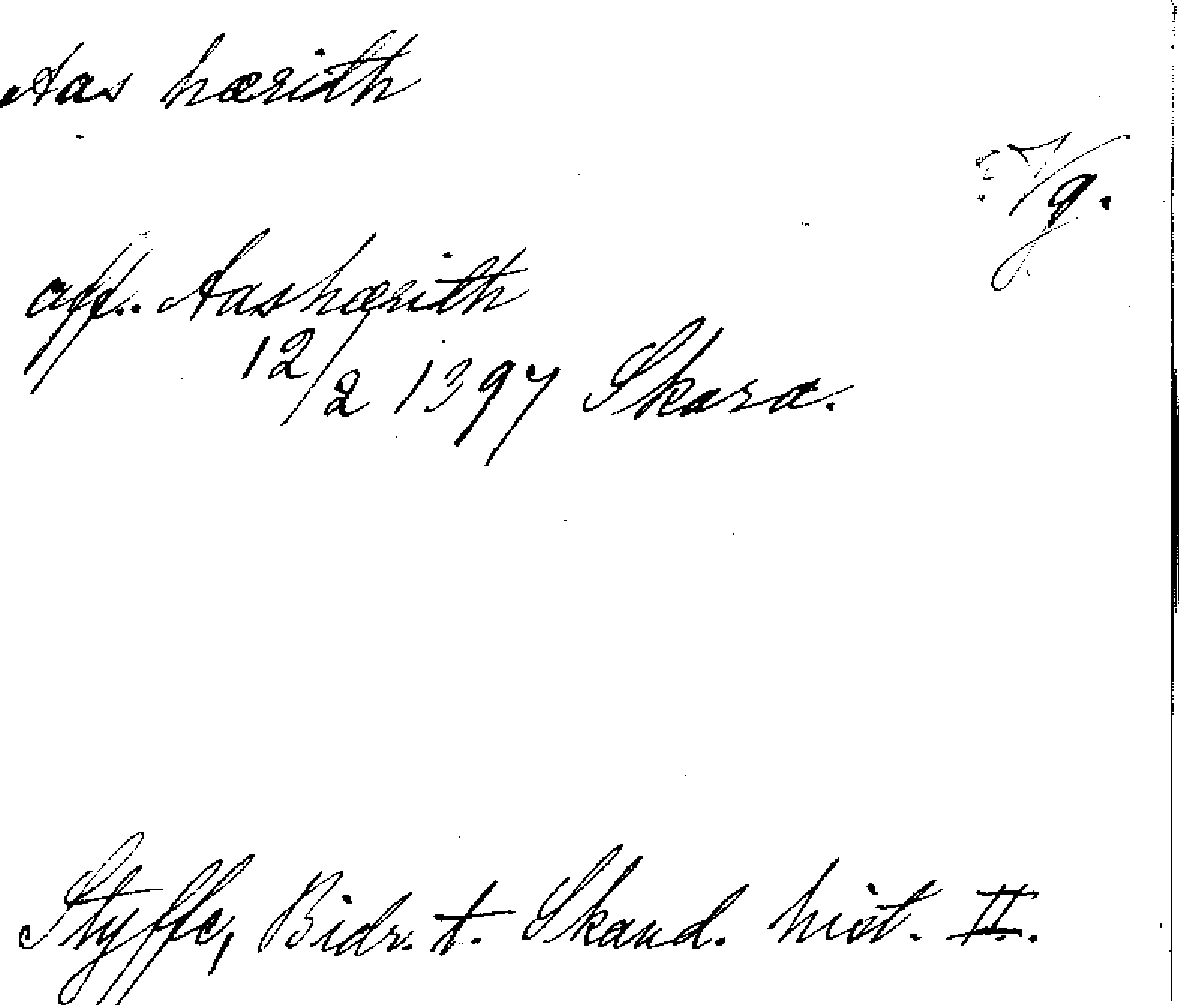 Aas hærith
: Vg.
aff. Aashærith
12/2 1397 Skara.
Styffe, Bidr. t. Skand. hist. II.